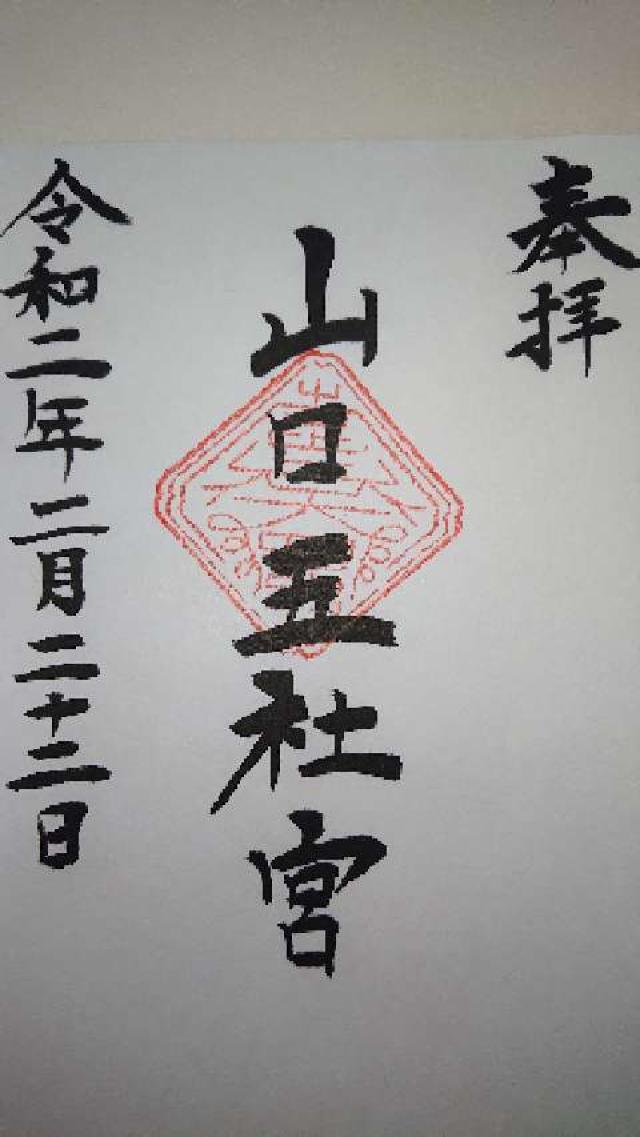 奉拝
山口五社宮
令和二年二月二十二日